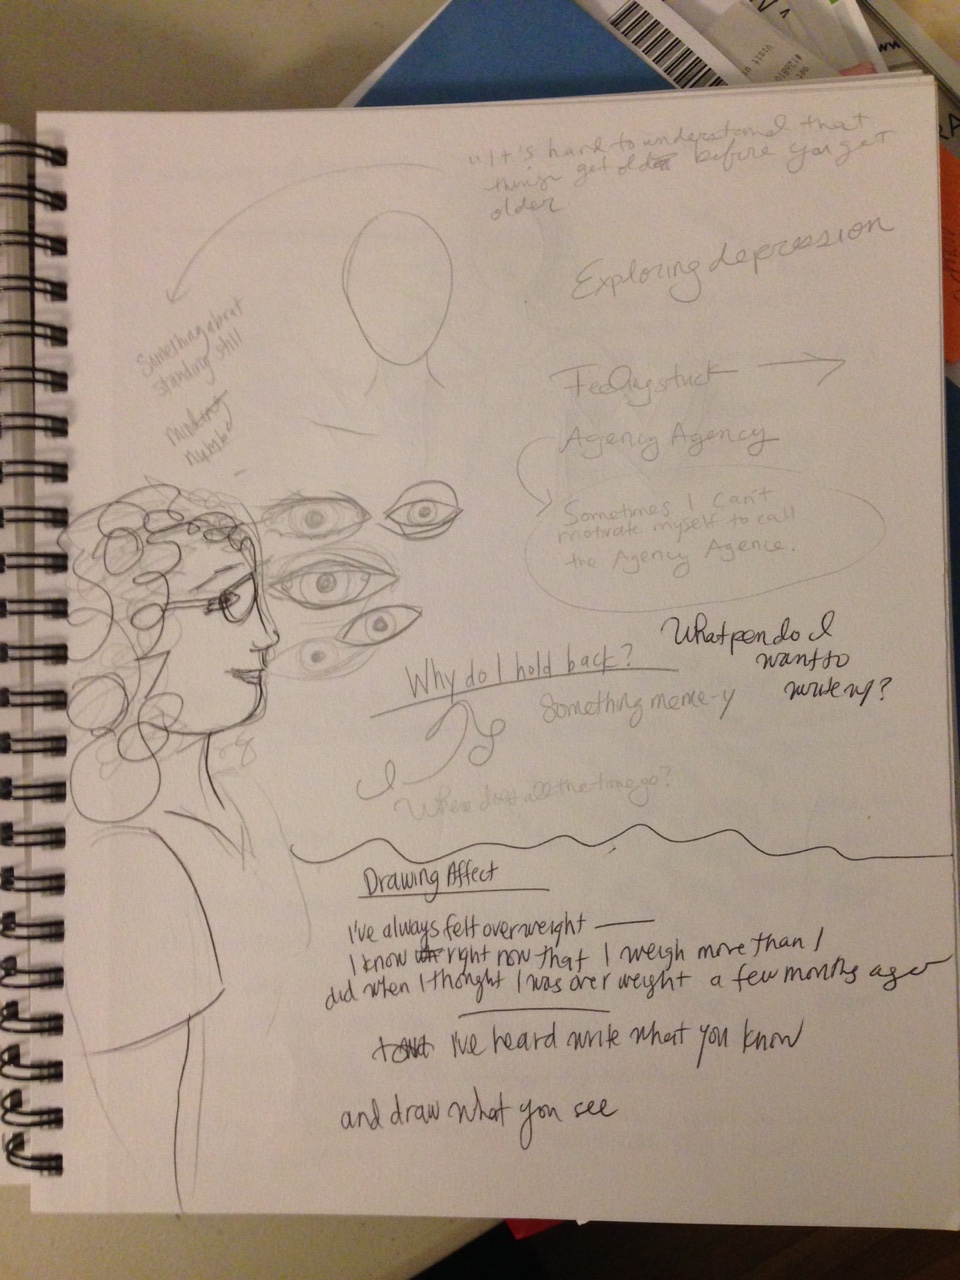 "It's hard to understand that
things get old before you get
older
Exploring depression
Something about
standing still
numb
Feeling stuck
Agency Agency
Sometimes I can't
motivate myself to call
the Agency Agence.
Why do I hold back?
What pen do I
want to
write w/?
Something meme-y
Where does all the time go?
Drawing Affect
I've always felt overweight —
I know right now that I weigh more than I
did when I thought I was over weight a few months ago
I've heard write what you know
and draw what you see